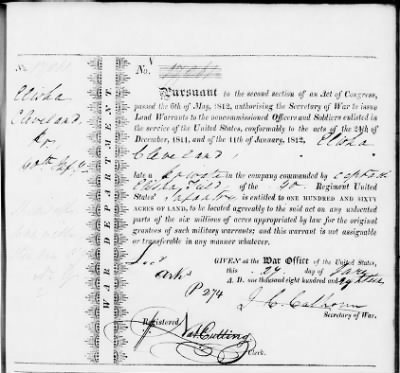 No.
Elisha
Cleveland
WAR DEPARTMENT.
No.
Pursuant to the second section of an Act of Congress,
passed the 6th of May, 1812, authorising the Secretary of War to issue
Land Warrants to the noncommissioned Officers and Soldiers enlisted in
the service of the United States, conformably to the acts of the 24th of
December, 1811, and of the 11th of January, 1812, Elisha
Cleveland,
late a in the company commanded by
Elisha of the Regiment United
States' Infantry is entitled to ONE HUNDRED AND SIXTY
ACRES OF LAND, to be located agreeably to the said act on any unlocated
parts of the six millions of acres appropriated by law for the original
grantees of such military warrants; and this warrant is not assignable
or transferable in any manner whatever.
GIVEN at the War Office of the United States,
this 27 day of
A. D. one thousand eight hundred and
Ark
P 274
J. C. Calhoun
Secretary of War.
Registered
Nat Cutting
Clerk.